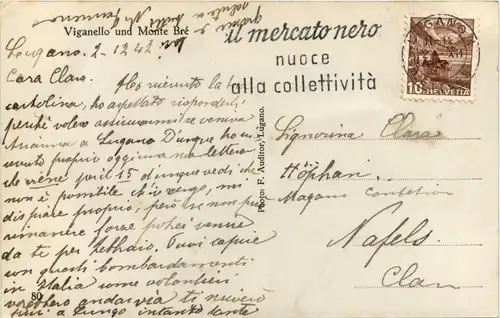 Viganello und Monte Brè
Lugano. 2-12 42
Cara Clara. Ho ricevuto la
cartolina, ho aspettato risponderti
perchè volevo assicurarmi se veniva
mamma a Lugano Dunque ho ri-
cevuto proprio oggi una lettera
che viene per il 15 dunque vedi che
non è possibile ch'io vengo, mi
dispiace proprio; però se non per
rimanere forse potrei venire
da te per febbraio. Puoi capire
con questi bombardamenti
in Italia come volontieri
vorrebbero andar via ti scriverò
80
il mercato nero
nuoce
alla collettività
LUGANO
10 HELVETIA
Photo: F. Auditor, Lugano.
Signorina Clara
Höphan.
Näfels.